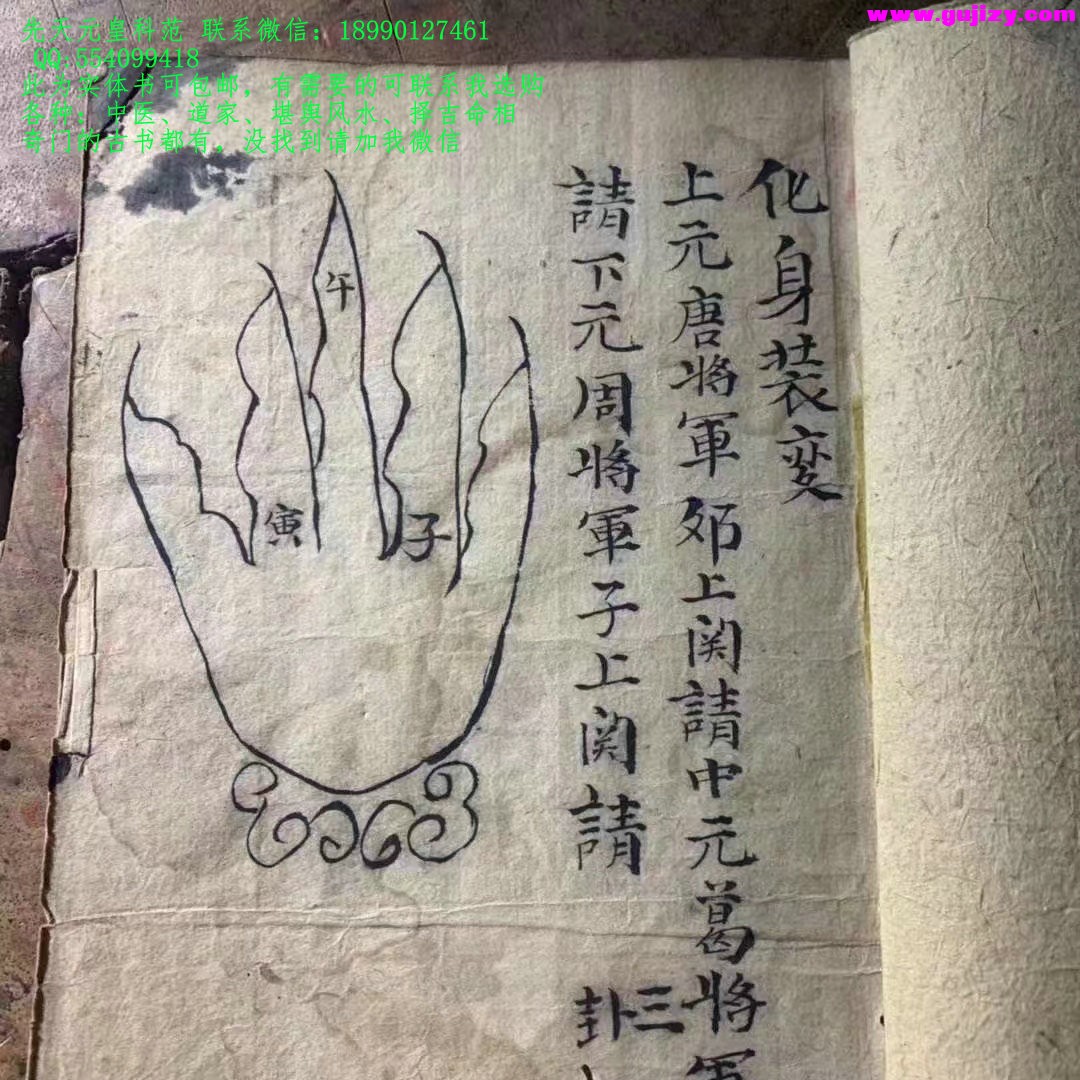 先天元皇科范 联系微信：18990127461
QQ:554099418
此为实体书可包邮，有需要的可联系我选购
各种：中医、道家、堪舆风水、择吉命相
奇门的古书都有，没找到请加我微信
www.gujizy.com
化身装变
上元唐将軍夘上関請中元葛将軍
請下元周将軍子上関請
三
卦
午
寅
子